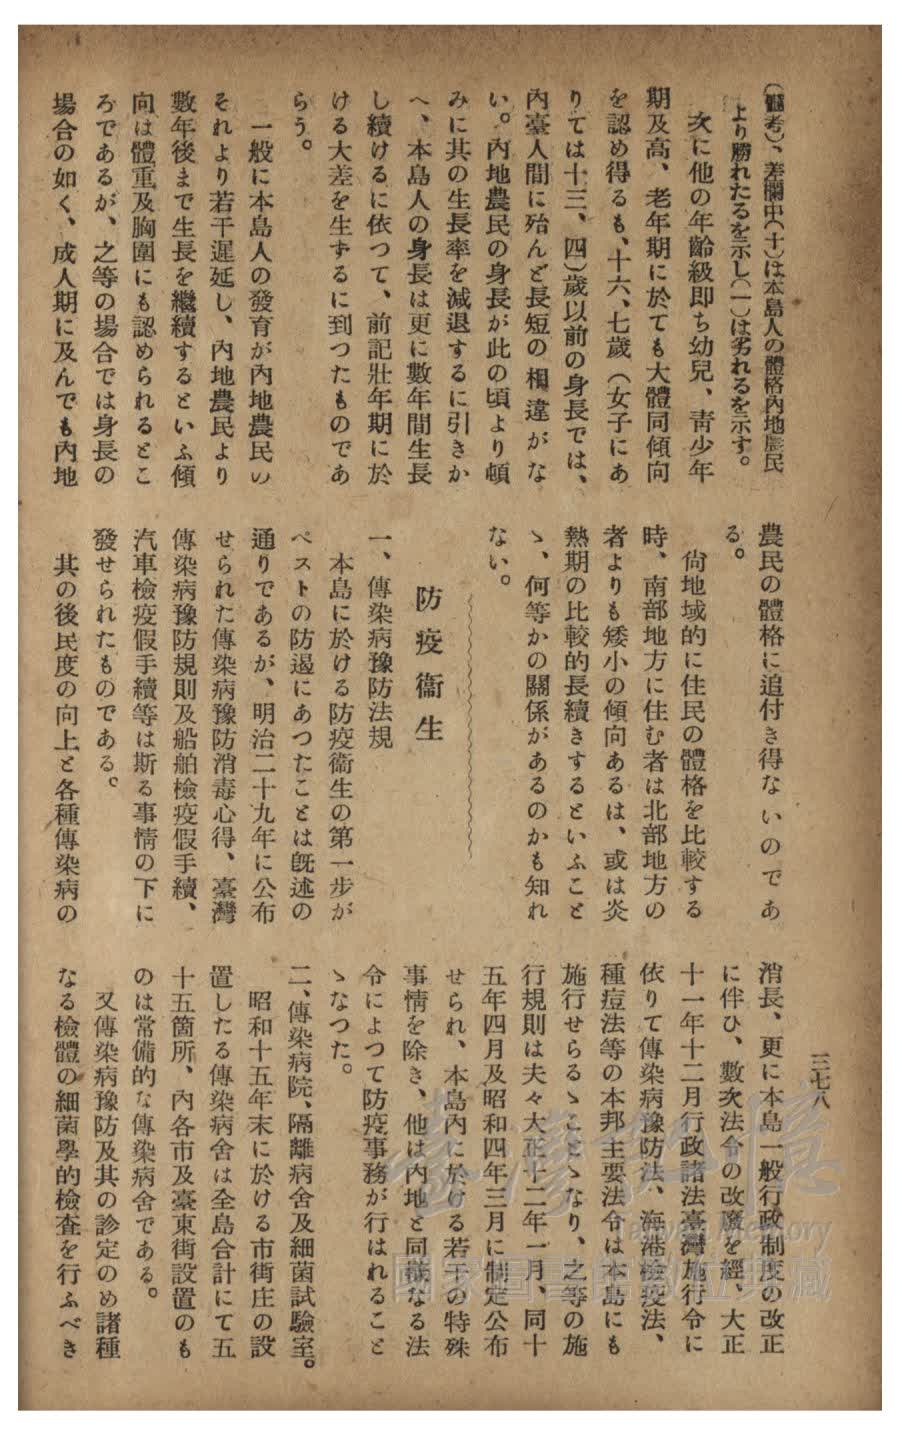 三七八
(備考)、差欄中(十)は本島人の體格內地農民
より勝れたるを示し(一)は劣れるを示す。
次に他の年齡級即ち幼兒、靑少年
期及高、老年期に於ても大體同傾向
を認め得るも、十六、七歲(女子にあ
りては十三、四)歲以前の身長では、
內臺人間に殆んど長短の相違がな
い。內地農民の身長が此の頃より頓
みに其の生長率を減退するに引きか
へ、本島人の身長は更に數年間生長
し續けるに依つて、前記壯年期に於
ける大差を生ずるに到つたものであ
らう。
一般に本島人の發育が內地農民の
それより若干遲延し、內地農民より
數年後まで生長を繼續するといふ傾
向は體重及胸圍にも認められるとこ
ろであるが、之等の場合では身長の
場合の如く、成人期に及んでも內地
農民の體格に追付き得ないのであ
る。
尙地域的に住民の體格を比較する
時、南部地方に住む者は北部地方の
者よりも矮小の傾向あるは、或は炎
熱期の比較的長續きするといふこと
ゝ、何等かの關係があるのかも知れ
ない。
防疫衞生
一、傳染病豫防法規
本島に於ける防疫衞生の第一步が
ペストの防遏にあつたことは旣述の
通りであるが、明治二十九年に公布
せられた傳染病豫防消毒心得、臺灣
傳染病豫防規則及船舶檢疫假手續、
汽車檢疫假手續等は斯る事情の下に
發せられたものである。
其の後民度の向上と各種傳染病の
消長、更に本島一般行政制度の改正
に伴ひ、數次法令の改廢を經、大正
十一年十二月行政諸法臺灣施行令に
依りて傳染病豫防法、海港檢疫法、
種痘法等の本邦主要法令は本島にも
施行せらるゝことゝなり、之等の施
行規則は夫々大正十二年一月、同十
五年四月及昭和四年三月に制定公布
せられ、本島內に於ける若干の特殊
事情を除き、他は內地と同樣なる法
令によつて防疫事務が行はれること
ゝなつた。
二、傳染病院、隔離病舍及細菌試驗室。
昭和十五年末に於ける市街庄の設
置したる傳染病舍は全島合計にて五
十五箇所、內各市及臺東街設置のも
のは常備的な傳染病舍である。
又傳染病豫防及其の診定のめ諸種
なる檢體の細菌學的檢査を行ふべき
臺灣記憶
Taiwan Memory
國家圖書館數位典藏